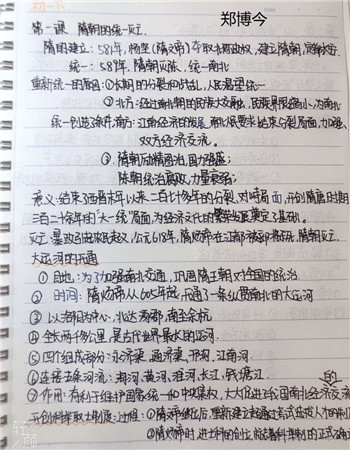 郑博今
初一下
第一课 隋朝的统一与灭亡
隋的建立：581年，杨坚（隋文帝）夺取北周政权，建立隋朝，定都长安
统一：589年，隋朝灭陈，统一南北
重新统一的原因：①长期的分裂和战乱，人民渴望统一
②北方：经过南北朝的民族大交融，民族界限缩小，为南北
统一创造条件；南方：江南经济的发展，南北人民要求结束分裂局面，加强
双方经济交流。
③隋朝励精图治，国力强盛；
陈朝统治腐败，力量衰弱；
意义：结束了西晋末年以来二百七十多年的分裂、对峙局面，开创隋唐时期
三百二十余年的"大一统"局面，为经济文化的繁荣发展奠定了基础。
灭亡：暴政引起农民起义，公元618年，隋炀帝在江都被部将所杀，隋朝灭亡
大运河的开通
①目地：为了加强南北交通，巩固隋王朝对全国的统治
②时间：隋炀帝从605年起，开通了一条纵贯南北的大运河
③以洛阳为中心，北达涿郡，南至余杭
④全长两千多公里，是古代世界最长的运河
⑤四个组成部分：永济渠，通济渠，邗沟，江南河
⑥连接五条河流：海河，黄河，淮河，长江，钱塘江
⑦作用：有利于维护国家统一和中央集权，大大促进了我国南北经济交流的
开创科举取士制度：过程：①隋文帝继位后，重新建立起通过考试选拔人才的制
②隋炀帝时，进士科的创立，标志着科举制的正式确立